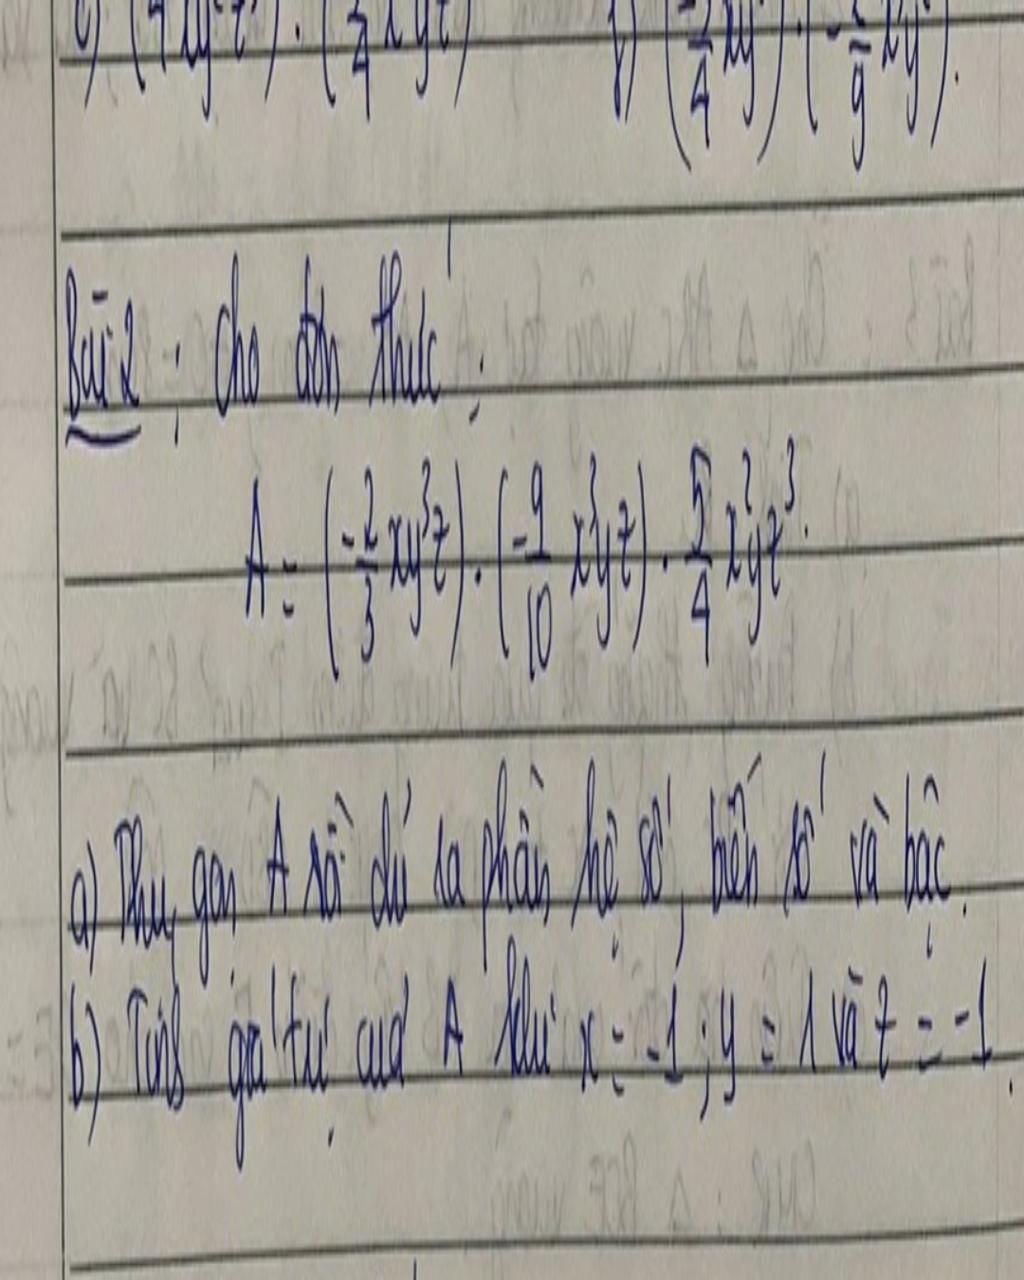 Bài 2 : Cho đơn thức :
A = (-2/3 xy³z) . (-9/10 x³yz) . 5/4 x²yz³.
a) Thu gọn A rồi chỉ ra phần hệ số, biến số và bậc.
b) Tính giá trị của A khi x = -1 ; y = 1 và z = -1.